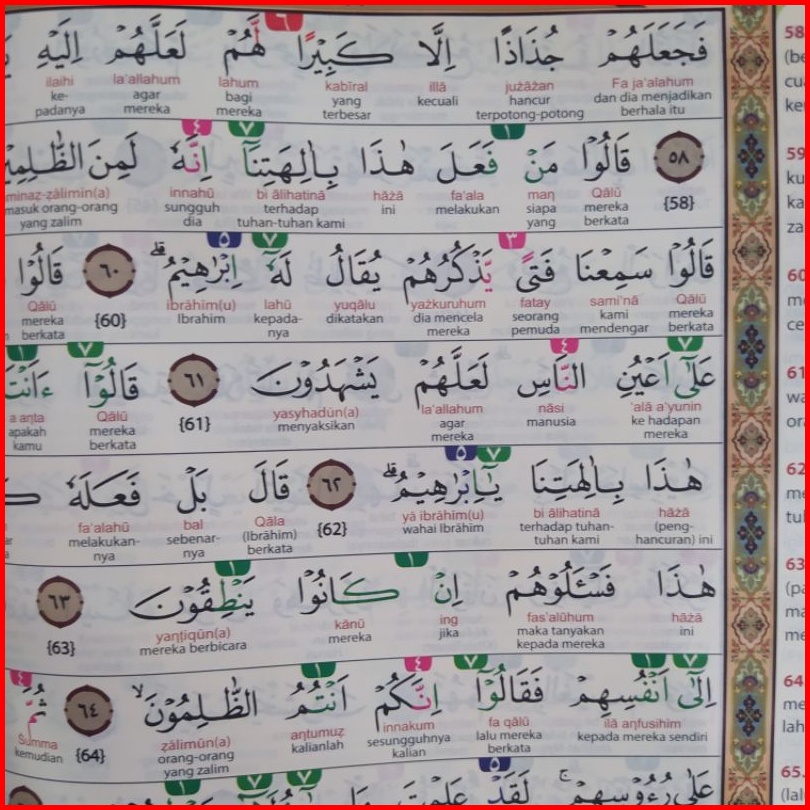 فَجَعَلَهُمْ جُذَاذًا اِلَّا كَبِيْرًا لَّهُمْ لَعَلَّهُمْ اِلَيْهِ
Fa ja'alahum jużāżan illā kabīral lahum la'allahum ilaihi
dan dia menjadikan berhala itu hancur terpotong-potong kecuali yang terbesar bagi mereka agar mereka ke-padanya
٥٨ قَالُوْا مَنْ فَعَلَ هٰذَا بِاٰلِهَتِنَآ اِنَّهٗ لَمِنَ الظّٰلِمِيْنَ
{58} Qālū man fa'ala hāżā bi ālihatinā innahū minaẓ-ẓālimīn(a)
mereka berkata siapa yang melakukan ini terhadap tuhan-tuhan kami sungguh dia masuk orang-orang yang zalim
قَالُوْا سَمِعْنَا فَتًى يَّذْكُرُهُمْ يُقَالُ لَهٗٓ اِبْرٰهِيْمُ ۗ ٦٠ قَالُوْا
Qālū sami'nā fatay yażkuruhum yuqālu lahū ibrāhīm(u) {60} Qālū
mereka berkata kami mendengar seorang pemuda dia mencela mereka dikatakan kepada-nya Ibrahim mereka berkata
عَلٰٓى اَعْيُنِ النَّاسِ لَعَلَّهُمْ يَشْهَدُوْنَ ٦١ قَالُوْٓا ءَاَنْتَ
'alā a'yunin nāsi la'allahum yasyhadūn(a) {61} Qālū a anta
ke hadapan mereka manusia agar mereka menyaksikan mereka berkata apakah kamu
هٰذَا بِاٰلِهَتِنَا يٰٓاِبْرٰهِيْمُ ۗ ٦٢ قَالَ بَلْ فَعَلَهٗ
hāżā bi ālihatinā yā ibrāhīm(u) {62} Qāla bal fa'alahū
(peng-hancuran) ini terhadap tuhan-tuhan kami wahai Ibrāhim (Ibrāhim) berkata sebenar-nya melakukan-nya
هٰذَا فَسْـَٔلُوْهُمْ اِنْ كَانُوْا يَنْطِقُوْنَ ٦٣
hāżā fas'alūhum ing kānū yanṭiqūn(a) {63}
ini maka tanyakan kepada mereka jika mereka mereka berbicara
اِلٰٓى اَنْفُسِهِمْ فَقَالُوْٓا اِنَّكُمْ اَنْتُمُ الظّٰلِمُوْنَ ۙ ٦٤ ثُمَّ
ilā anfusihim fa qālū innakum antumuẓ ẓālimūn(a) {64} Ṡumma
kepada mereka sendiri lalu mereka berkata sesungguhnya kalian kalianlah orang-orang yang zalim kemudian
عَلٰى رُءُوْسِهِمْ ۚ لَقَدْ عَلِمْتَ